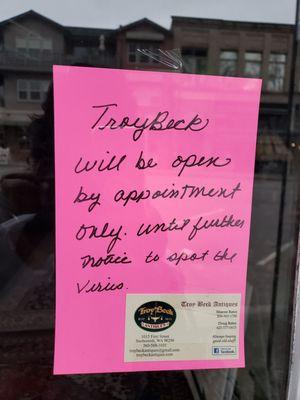 TroyBeck
will be open
by appointment
only. until further
notice to spot the
Virius.
Troy Beck Antiques
Troy Beck
ANTIQUES
1015 First Street
Snohomish, WA 98290
troybeckantiques@gmail.com
troybeckantiques.com
Always buying
good old stuff!
facebook